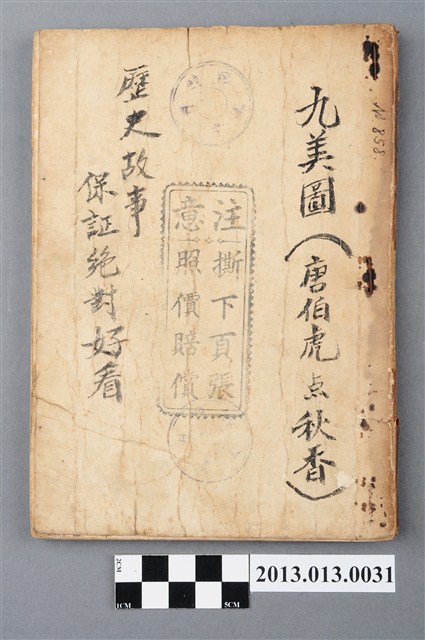 九美圖(唐伯虎点秋香)
№ 858
注意
撕下頁張
照價賠償
歷史故事
保証絶對好看
2CM
1CM
5CM
2013.013.0031